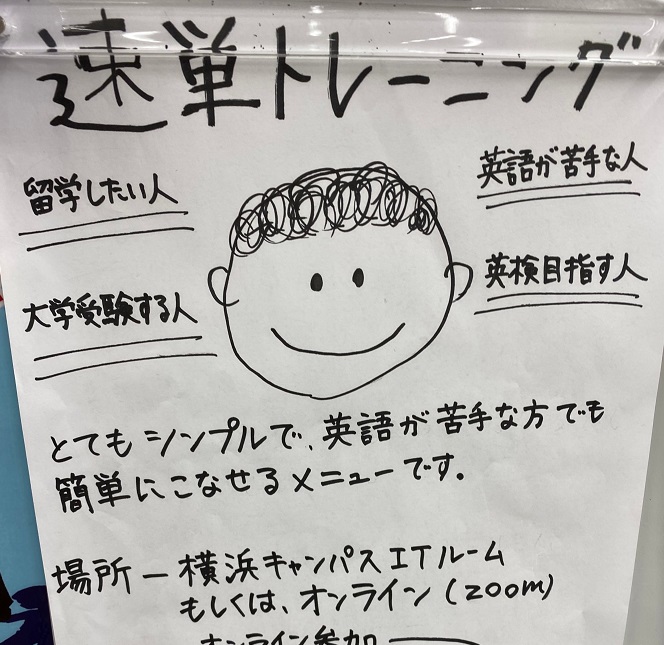 速単トレーニング
留学したい人
英語が苦手な人
大学受験する人
英検目指す人
とてもシンプルで、英語が苦手な方でも
簡単にこなせるメニューです。
場所ー横浜キャンパスITルーム
もしくは、オンライン(zoom)
オンライン参加